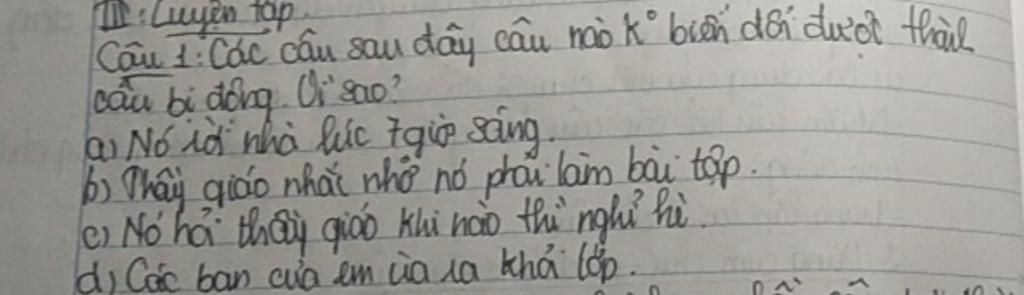 III: Luyện tập.
Câu 1: Các câu sau đây câu nào k° biến đổi được thành
câu bị động. Vì sao?
a) Nó rời nhà lúc 7 giờ sáng.
b) Thầy giáo nhắc nhở nó phải làm bài tập.
c) Nó hỏi thầy giáo khi nào thì nghỉ hè.
d) Các bạn của em ùa ra khỏi lớp.